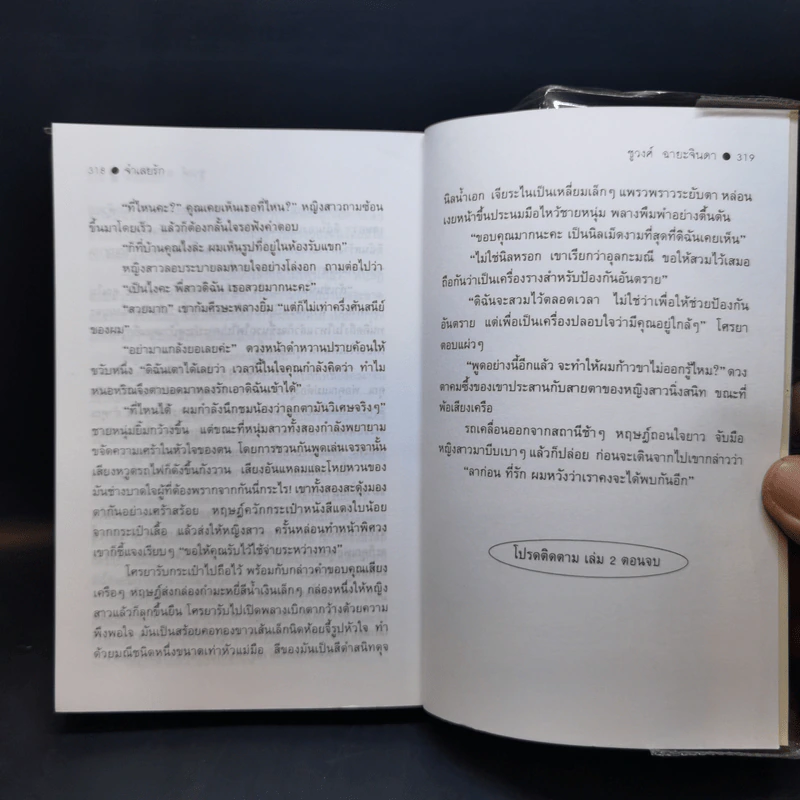 318 ● จำเลยรัก
"ที่ไหนคะ?" คุณเคยเห็นเธอที่ไหน?" หญิงสาวถามซ้อน
ขึ้นมาโดยเร็ว แล้วก็ต้องกลั้นใจรอฟังคำตอบ
"ก็ที่บ้านคุณไงล่ะ ผมเห็นรูปที่อยู่ในห้องรับแขก"
หญิงสาวลอบระบายลมหายใจอย่างโล่งอก ถามต่อไปว่า
"เป็นไงคะ พี่สาวดิฉัน เธอสวยมากนะคะ"
"สวยมาก" เขาก้มศีรษะพลางยิ้ม "แต่ก็ไม่เท่าครึ่งศันสนีย์
ของผม"
"อย่ามาแกล้งยอเลยค่ะ" ดวงหน้าดำหวานปรายค้อนให้
ขวับหนึ่ง "ดิฉันเดาได้เลยว่า เวลานี้ในใจคุณกำลังคิดว่า ทำไม
หนอหริณจึงตาบอดมาหลงรักเอาดิฉันเข้าได้"
"ที่ไหนได้ ผมกำลังนึกชมน้องว่าลูกตามันวิเศษจริงๆ"
ชายหนุ่มยิ้มกว้างขึ้น แต่ขณะที่หนุ่มสาวทั้งสองกำลังพยายาม
ขจัดความเศร้าในหัวใจของตน โดยการชวนกันพูดเล่นเจรจานั้น
เสียงหวูดรถไฟก็ดังขึ้นกังวาน เสียงอันแหลมและโหยหวนของ
มันช่างบาดใจผู้ที่ต้องพรากจากกันนี่กระไร! เขาทั้งสองสะดุ้งมอง
ตากันอย่างเศร้าสร้อย หฤษฎ์ควักกระเป๋าหนังสีแดงใบน้อย
จากกระเป๋าเสื้อ แล้วส่งให้หญิงสาว ครั้นหล่อนทำหน้าพิศวง
เขาก็ชี้แจงเรียบๆ "ขอให้คุณรับไว้ใช้จ่ายระหว่างทาง"
โศรยารับกระเป๋าไปถือไว้ พร้อมกับกล่าวคำขอบคุณเสียง
เครือๆ หฤษฎ์ส่งกล่องกำมะหยี่สีน้ำเงินเล็กๆ กล่องหนึ่งให้หญิง
สาวแล้วก็ลุกขึ้นยืน โศรยารับไปเปิดพลางเบิกตากว้างด้วยความ
พึงพอใจ มันเป็นสร้อยคอทองขาวเส้นเล็กนิดห้อยจี้รูปหัวใจ ทำ
ด้วยมณีชนิดหนึ่งขนาดเท่าหัวแม่มือ สีของมันเป็นสีดำสนิทดุจ
ชูวงศ์ ฉายะจินดา ● 319
นิลน้ำเอก เจียระไนเป็นเหลี่ยมเล็กๆ แพรวพราวระยับตา หล่อน
เงยหน้าขึ้นประนมมือไหว้ชายหนุ่ม พลางพึมพำอย่างตื้นตัน
"ขอบคุณมากนะคะ เป็นนิลเม็ดงามที่สุดที่ดิฉันเคยเห็น"
"ไม่ใช่นิลหรอก เขาเรียกว่าอุลกะมณี ขอให้สวมไว้เสมอ
ถือกันว่าเป็นเครื่องรางสำหรับป้องกันอันตราย"
"ดิฉันจะสวมไว้ตลอดเวลา ไม่ใช่ว่าเพื่อให้ช่วยป้องกัน
อันตราย แต่เพื่อเป็นเครื่องปลอบใจว่ามีคุณอยู่ใกล้ๆ" โศรยา
ตอบแผ่วๆ
"พูดอย่างนี้อีกแล้ว จะทำให้ผมก้าวขาไม่ออกรู้ไหม?" ดวง
ตาคมซึ้งของเขาประสานกับสายตาของหญิงสาวนิ่งสนิท ขณะที่
พ้อเสียงเครือ
รถเคลื่อนออกจากสถานีช้าๆ หฤษฎ์ถอนใจยาว จับมือ
หญิงสาวมาบีบเบาๆ แล้วก็ปล่อย ก่อนจะเดินจากไปเขากล่าวว่า
"ลาก่อน ที่รัก ผมหวังว่าเราคงจะได้พบกันอีก"
โปรดติดตาม เล่ม 2 ตอนจบ